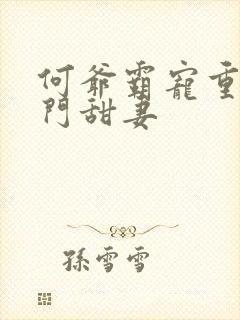 何爺霸寵重
門甜妻
孫雪雪